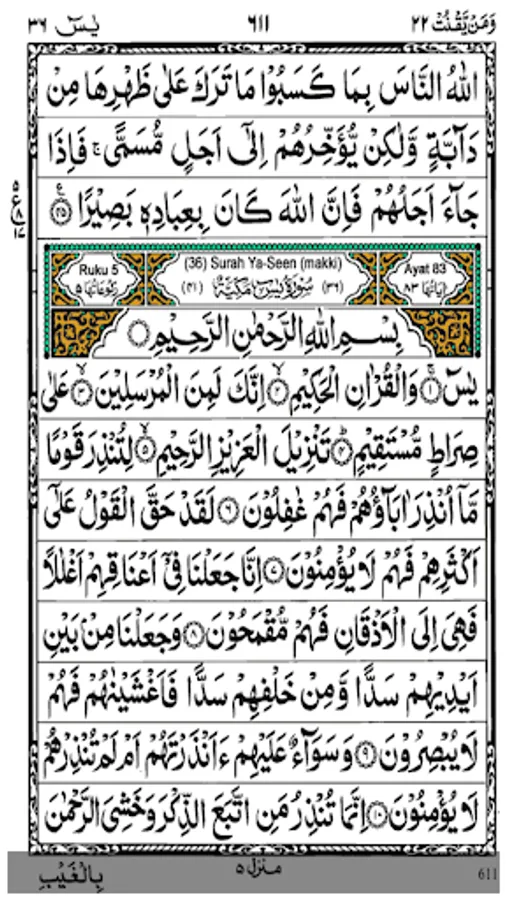 وَمَنْ يَّقْنُتْ ٢٢ ٦١١ يٰسٓ ٣٦
اللهُ النَّاسَ بِمَا كَسَبُوْا مَا تَرَكَ عَلٰى ظَهْرِهَا مِنْ
دَآبَّةٍ وَّلٰكِنْ يُّؤَخِّرُهُمْ اِلٰٓى اَجَلٍ مُّسَمًّى ۚ فَاِذَا
جَآءَ اَجَلُهُمْ فَاِنَّ اللهَ كَانَ بِعِبَادِهٖ بَصِيْرًا ﴿٤٥﴾
Ruku 5 (36) Surah Ya-Seen (makki) Ayat 83
اٰيَاتُهَا ٨٣ (٣٦) سُوْرَةُ يٰسٓ مَكِّيَّةٌ (٤١) رُكُوْعَاتُهَا ٥
بِسْمِ اللهِ الرَّحْمٰنِ الرَّحِيْمِ
يٰسٓ ﴿١﴾ وَالْقُرْاٰنِ الْحَكِيْمِ ﴿٢﴾ اِنَّكَ لَمِنَ الْمُرْسَلِيْنَ ﴿٣﴾ عَلٰى
صِرَاطٍ مُّسْتَقِيْمٍ ﴿٤﴾ تَنْزِيْلَ الْعَزِيْزِ الرَّحِيْمِ ﴿٥﴾ لِتُنْذِرَ قَوْمًا
مَّآ اُنْذِرَ اٰبَآؤُهُمْ فَهُمْ غٰفِلُوْنَ ﴿٦﴾ لَقَدْ حَقَّ الْقَوْلُ عَلٰٓى
اَكْثَرِهِمْ فَهُمْ لَا يُؤْمِنُوْنَ ﴿٧﴾ اِنَّا جَعَلْنَا فِيْٓ اَعْنَاقِهِمْ اَغْلٰلًا
فَهِيَ اِلَى الْاَذْقَانِ فَهُمْ مُّقْمَحُوْنَ ﴿٨﴾ وَجَعَلْنَا مِنْۢ بَيْنِ
اَيْدِيْهِمْ سَدًّا وَّمِنْ خَلْفِهِمْ سَدًّا فَاَغْشَيْنٰهُمْ فَهُمْ
لَا يُبْصِرُوْنَ ﴿٩﴾ وَسَوَآءٌ عَلَيْهِمْ ءَاَنْذَرْتَهُمْ اَمْ لَمْ تُنْذِرْهُمْ
لَا يُؤْمِنُوْنَ ﴿١٠﴾ اِنَّمَا تُنْذِرُ مَنِ اتَّبَعَ الذِّكْرَ وَخَشِيَ الرَّحْمٰنَ
بِالْغَيْبِ منزل ٥ 611